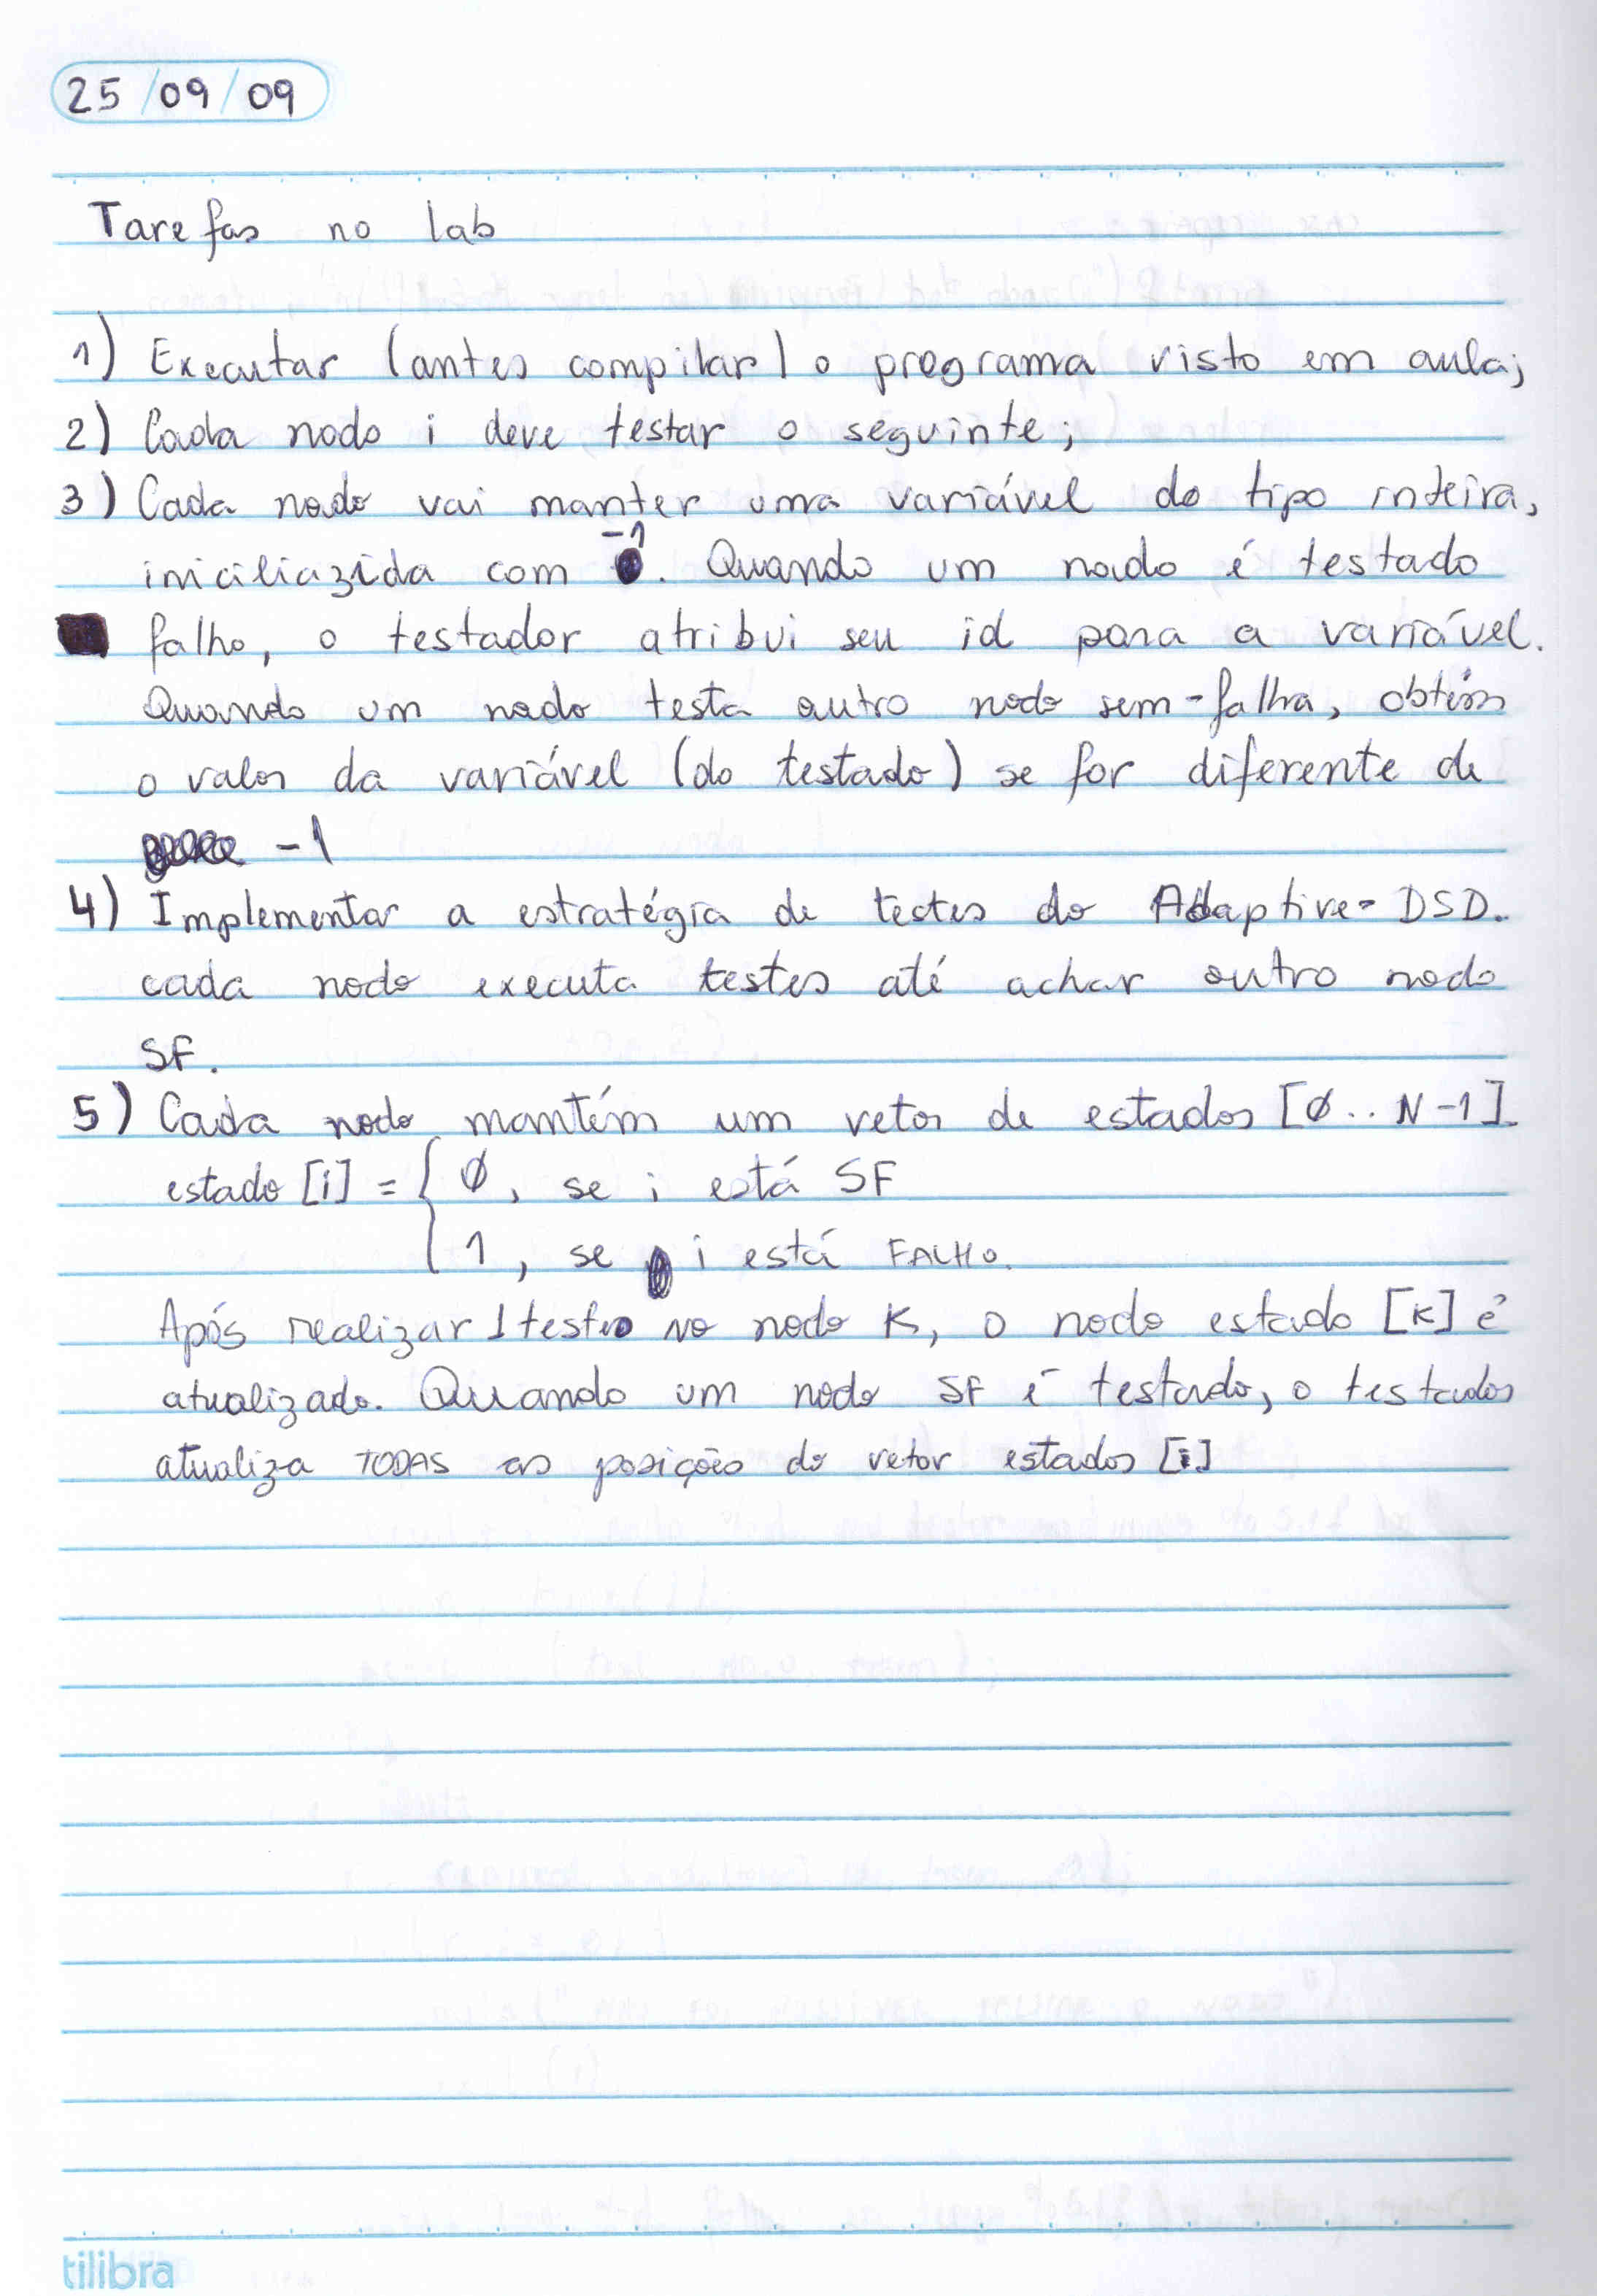 25/09/09
Tarefas no lab
1) Executar (antes compilar) o programa visto em aula;
2) Cada nodo i deve testar o seguinte;
3) Cada nodo vai manter uma variável do tipo inteira,
iniciliazida com -1. Quando um nodo é testado
falho, o testador atribui seu id para a variável.
Quando um nodo testa outro nodo sem-falha, obtém
o valor da variável (do testado) se for diferente de
-1
4) Implementar a estratégia de testes do Adaptive-DSD.
cada nodo executa testes até achar outro nodo
SF.
5) Cada nodo mantém um vetor de estados [∅..N-1].
estado [i] = { ∅, se i está SF
1, se i está FALHO.
Após realizar 1 testes no nodo K, o nodo estado [K] é
atualizado. Quando um nodo SF é testado, o testador
atualiza TODAS as posições do vetor estados [i]
tilibra